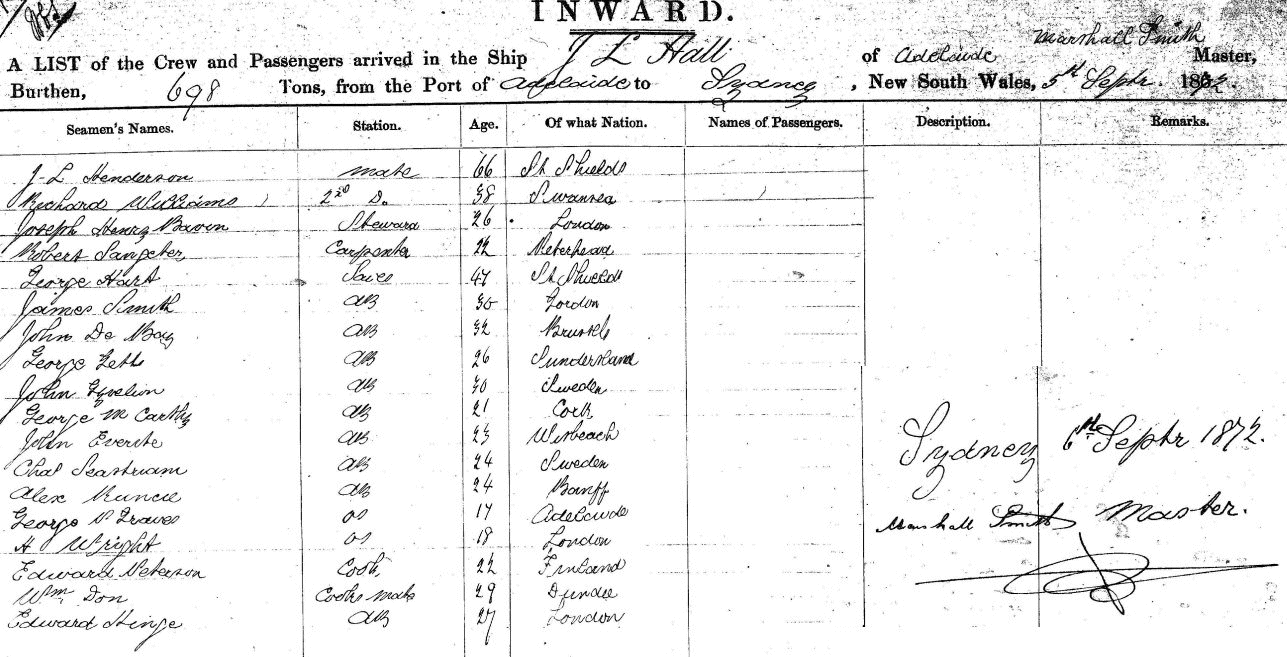 INWARD.
Marshall Smith
A LIST of the Crew and Passengers arrived in the Ship J L Hall of Adelaide Master,
Burthen, 698 Tons, from the Port of Adelaide to Sydney, New South Wales, 5th Septr. 1872.
Seamen's Names. Station. Age. Of what Nation. Names of Passengers. Description. Remarks.
J L Henderson mate 66 St Shields
Richard Williams 2nd Do 38 Swansea
Joseph Henry Steward 26 London
Robert Carpenter 22 Peterhead
George Hart 47 St Shields
James Smith AB 30 London
John De Bay AB 32 Brussels
George Letts AB 26 Sunderland
John AB 30 Sweden
George McCarthy AB 21 Cork
John Everite AB 23 Wisbeach
Chas Seastriam AB 24 Sweden
Alex Runcie AB 24 Banff
George Graves OS 17 Adelaide
H Wright OS 18 London
Edward Peterson Cook 22 Finland
Wm Don Cooks mate 29 Dundee
Edward Hinge AB 27 London
Sydney 6th Septr 1872.
Marshall Smith Master.